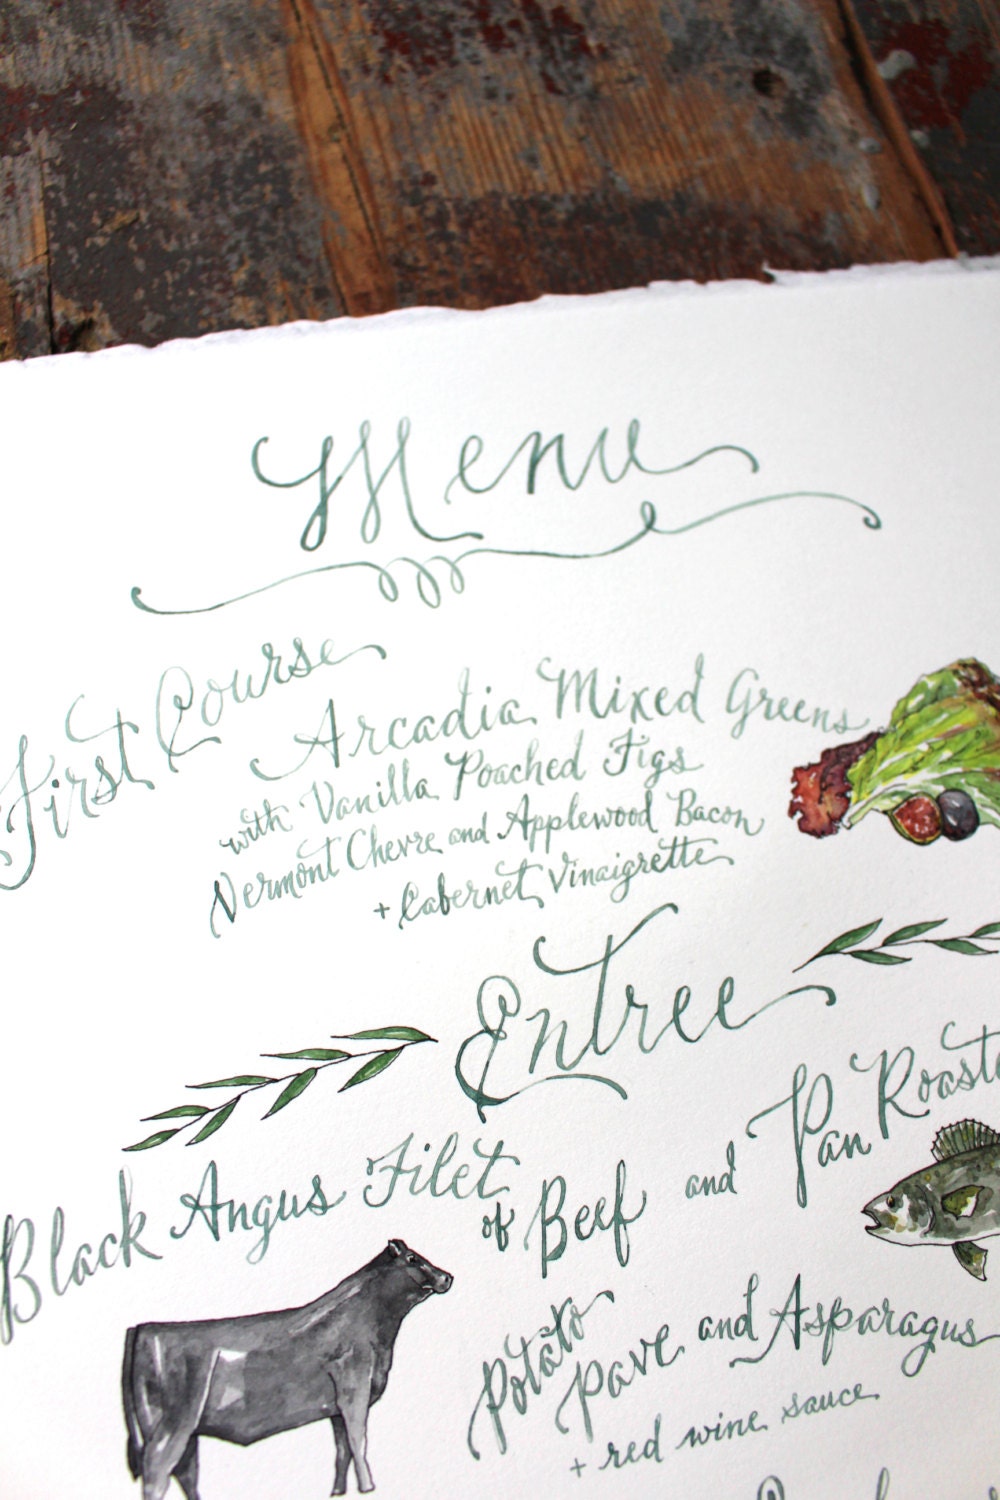 Menu
First Course
Arcadia Mixed Greens
with Vanilla Poached Figs
Vermont Chevre and Applewood Bacon
+ Cabernet Vinaigrette
Entree
Black Angus Filet of Beef and Pan Roaste
Potato Pave and Asparagus
+ red wine sauce